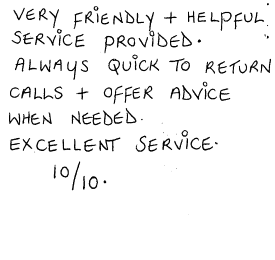 VERY FRIENDLY + HELPFUL
SERVICE PROVIDED.
ALWAYS QUICK TO RETURN
CALLS + OFFER ADVICE
WHEN NEEDED.
EXCELLENT SERVICE.
10/10.